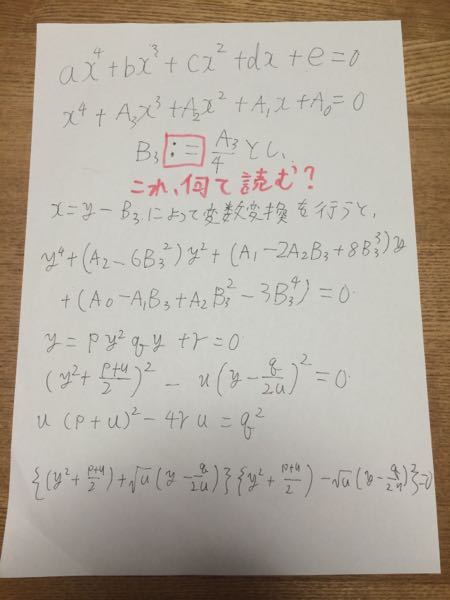 ax⁴+bx³+cx²+dx+e=0
x⁴+A₃x³+A₂x²+A₁x+A₀=0
B₃:=A₃/4とし、
これ、何て読む?
x=y-B₃によって変数変換を行うと、
y⁴+(A₂-6B₃²)y²+(A₁-2A₂B₃+8B₃³)y
+(A₀-A₁B₃+A₂B₃²-3B₃⁴)=0
y=py²qy+r=0
(y²+(p+u)/2)²-u(y-q/2u)²=0
u(p+u)²-4ru=q²
{(y²+(p+u)/2)+√u(y-q/2u)}{(y²+(p+u)/2)-√u(y-q/2u)}=0